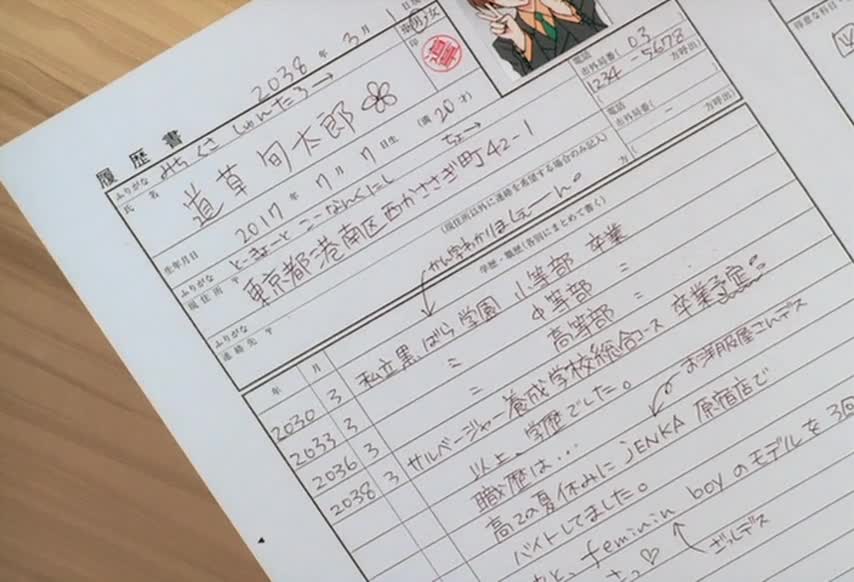 履歴書 2038年3月1日現
男・女
印
道草
ふりがな みちくさ しゅんたろー→
氏名 道草旬太郎
2017年7月7日生 (満20才)
生年月日
ふりがな とーきょーと こーなんくにし ちょー→
現住所 〒 東京都港南区西かささぎ町42-1
電話
市外局番(03)
1234-5678
(方呼出)
ふりがな
連絡先 〒
(現住所以外に連絡を希望する場合のみ記入)
方
電話
市外局番( )
-
(方呼出)
年 月 学歴・職歴(各別にまとめて書く)
かん字わかりましぇーん。
2030 3 私立黒ばら学園 小等部 卒業
2033 3 〃 中等部 〃
2036 3 〃 高等部 〃
2038 3 サルベージャー養成学校総合コース 卒業予定
以上、学歴でした。
職歴は… お洋服屋さんデス
高2の夏休みにJENKA 原宿店で
バイトしてました。
feminin boyのモデルを3回
ザッシデス
得意な科目